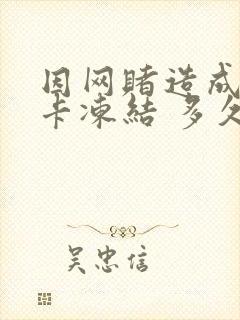 因网赌造成
卡凍結 多久
吴忠信